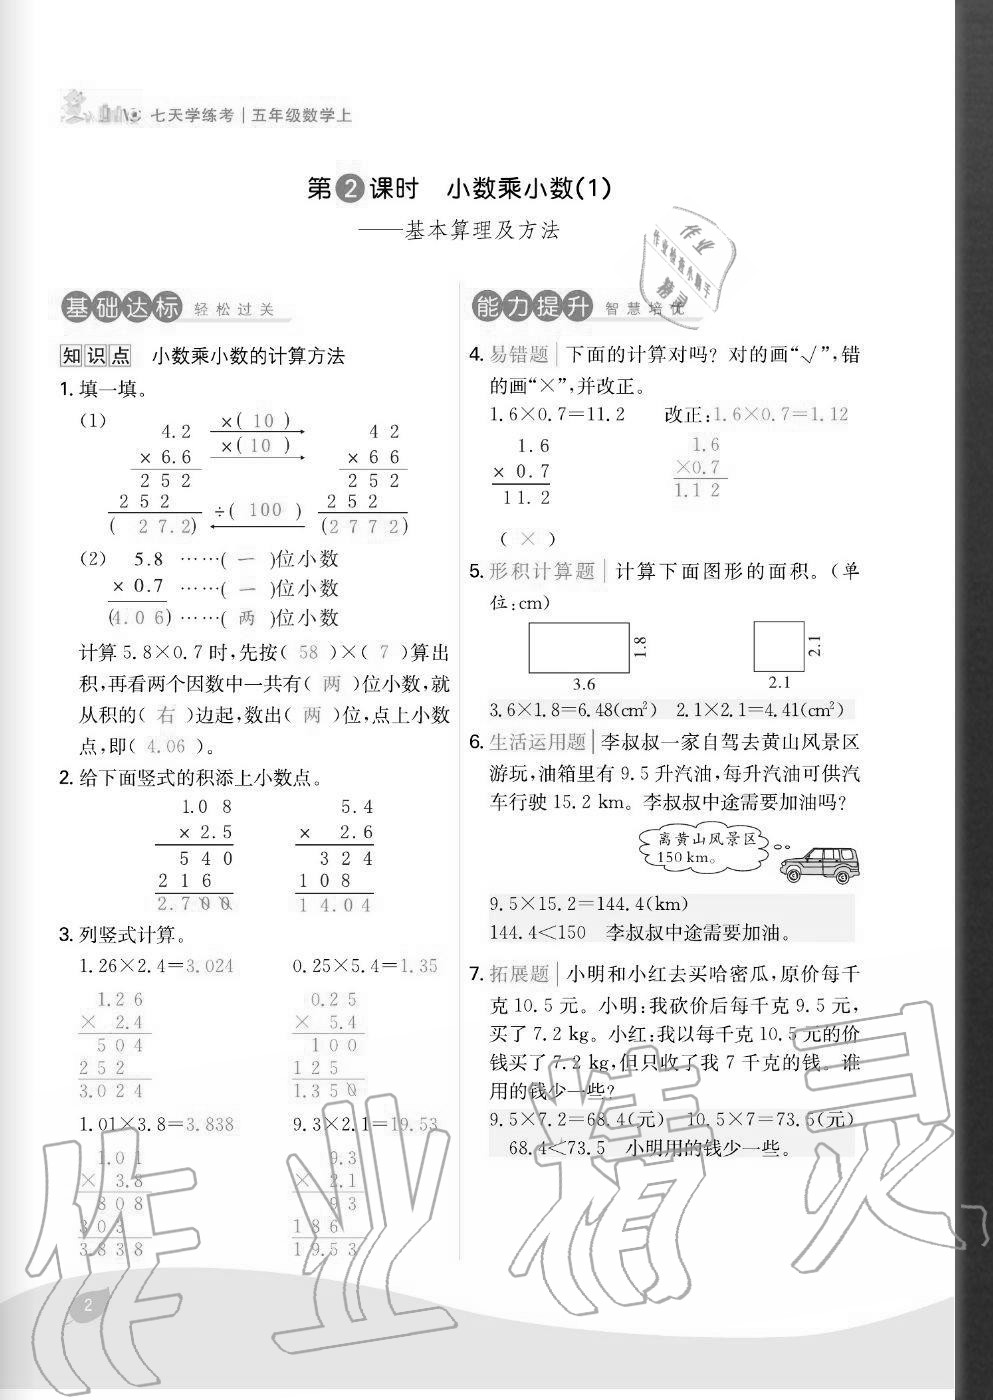 七天学练考|五年级数学上
第2课时 小数乘小数(1)
——基本算理及方法
基础达标 轻松过关
知识点 小数乘小数的计算方法
1. 填一填。
(1)
4.2 ×( 10 ) 4 2
× 6.6 ×( 10 ) × 6 6
2 5 2 2 5 2
2 5 2 ÷( 100 ) 2 5 2
( 2 7. 2) (2 7 7 2)
(2) 5.8 ……( 一 )位小数
× 0.7 ……( 一 )位小数
(4. 0 6) ……( 两 )位小数
计算5.8×0.7时,先按( 58 )×( 7 )算出
积,再看两个因数中一共有( 两 )位小数,就
从积的( 右 )边起,数出( 两 )位,点上小数
点,即( 4.06 )。
2. 给下面竖式的积添上小数点。
1.0 8 5.4
× 2.5 × 2.6
5 4 0 3 2 4
2 1 6 1 0 8
2. 7 0 0 1 4. 0 4
3. 列竖式计算。
1.26×2.4=3.024 0.25×5.4=1.35
1. 2 6 0. 2 5
× 2.4 × 5.4
5 0 4 1 0 0
2 5 2 1 2 5
3. 0 2 4 1. 3 5 0
1.01×3.8=3.838 9.3×2.1=19.53
1. 0 1 9.3
× 3.8 × 2.1
8 0 8 9 3
3 0 3 1 8 6
3. 8 3 8 1 9. 5 3
2
能力提升 智慧培优
4. 易错题|下面的计算对吗?对的画“√”,错
的画“×”,并改正。
1.6×0.7=11.2 改正:1.6×0.7=1.12
1.6 1.6
× 0.7 ×0.7
1 1. 2 1. 1 2
( × )
5. 形积计算题|计算下面图形的面积。(单
位:cm)
1.8
3.6
2.1
2.1
3.6×1.8=6.48(cm²) 2.1×2.1=4.41(cm²)
6. 生活运用题|李叔叔一家自驾去黄山风景区
游玩,油箱里有9.5升汽油,每升汽油可供汽
车行驶15.2 km。李叔叔中途需要加油吗?
离黄山风景区
150 km。
9.5×15.2=144.4(km)
144.4<150 李叔叔中途需要加油。
7. 拓展题|小明和小红去买哈密瓜,原价每千
克10.5元。小明:我砍价后每千克9.5元,
买了7.2 kg。小红:我以每千克10.5元的价
钱买了7.2 kg,但只收了我7千克的钱。谁
用的钱少一些?
9.5×7.2=68.4(元) 10.5×7=73.5(元)
68.4<73.5 小明用的钱少一些。
作业
作业检查小助手
精灵
作业精灵